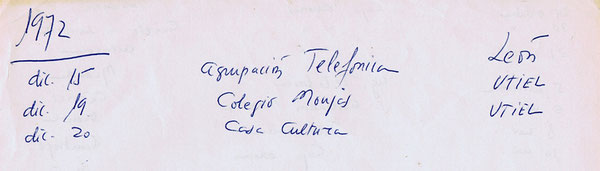 1972
dic. 15 Agrupación Telefonica León
dic. 19 Colegio Monjas UTIEL
dic. 20 Casa Cultura UTIEL